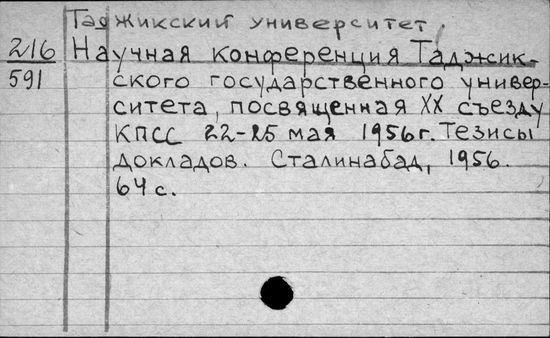 Таджикский университет.
216
591
Научная конференция Таджик-
ского государственного универ-
ситета, посвященная XX съезду
КПСС 22-25 мая 1956 г. Тезисы
докладов. Сталинабад, 1956.
64 с.